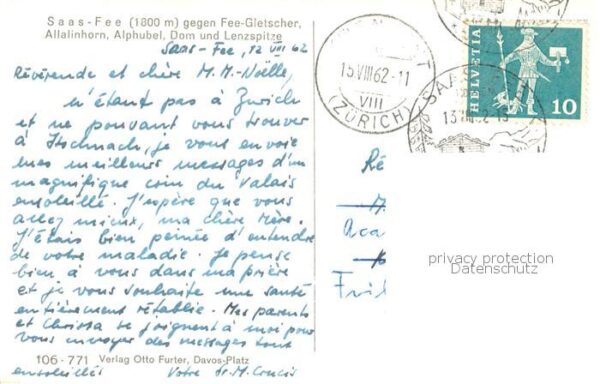 Saas-Fee (1800 m) gegen Fee-Gletscher,
Allalinhorn, Alphubel, Dom und Lenzspitze
Saas-Fee, 12 VIII 62
Révérende et chère M. M.-Noëlle,
n'étant pas à Zurich
et ne pouvant vous trouver
à je vous envoie
mes meilleurs messages d'un
magnifique coin du Valais
ensoleillé. J'espère que vous
allez mieux, ma chère Mère.
J'étais bien peinée d'entendre
de votre maladie. Je pense
bien à vous dans ma prière
et je vous souhaite une santé
entièrement rétablie. Mes parents
et se joignent à moi pour
vous envoyer des messages tous
ensoleillés Votre Sr. M.
106-771 Verlag Otto Furter, Davos-Platz
15.VIII.62-11
VIII
(ZÜRICH)
SAAS
HELVETIA
10
Ré
Aca
Frib
privacy protection
Datenschutz